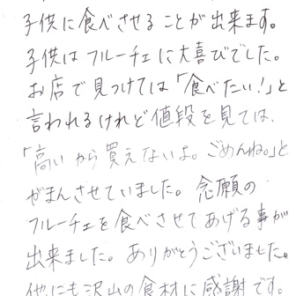 子供に食べさせることが出来ます。
子供はフルーチェに大喜びでした。
お店で見つけては「食べたい!」と
言われるけれど値段を見ては、
「高いから買えないよ。ごめんね。」と
がまんさせていました。念願の
フルーチェを食べさせてあげる事が
出来ました。ありがとうございました。
他にも沢山の食材に感謝です。